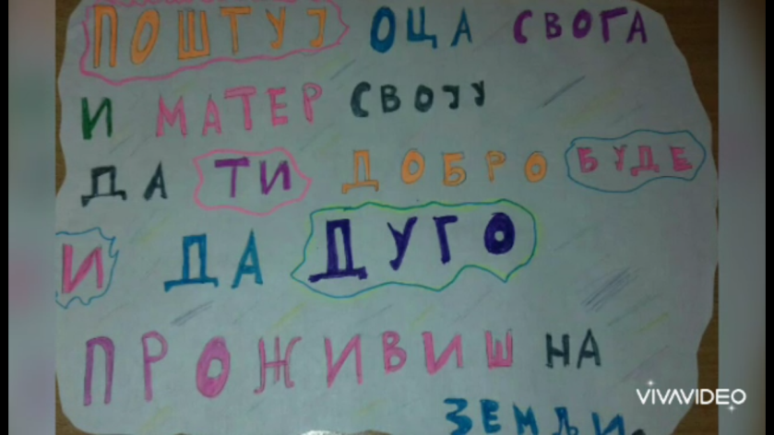 ПОШТУЈ ОЦА СВОГА
И МАТЕР СВОЈУ
ДА ТИ ДОБРО БУДЕ
И ДА ДУГО
ПРОЖИВИШ НА
ЗЕМЉИ.
VIVAVIDEO